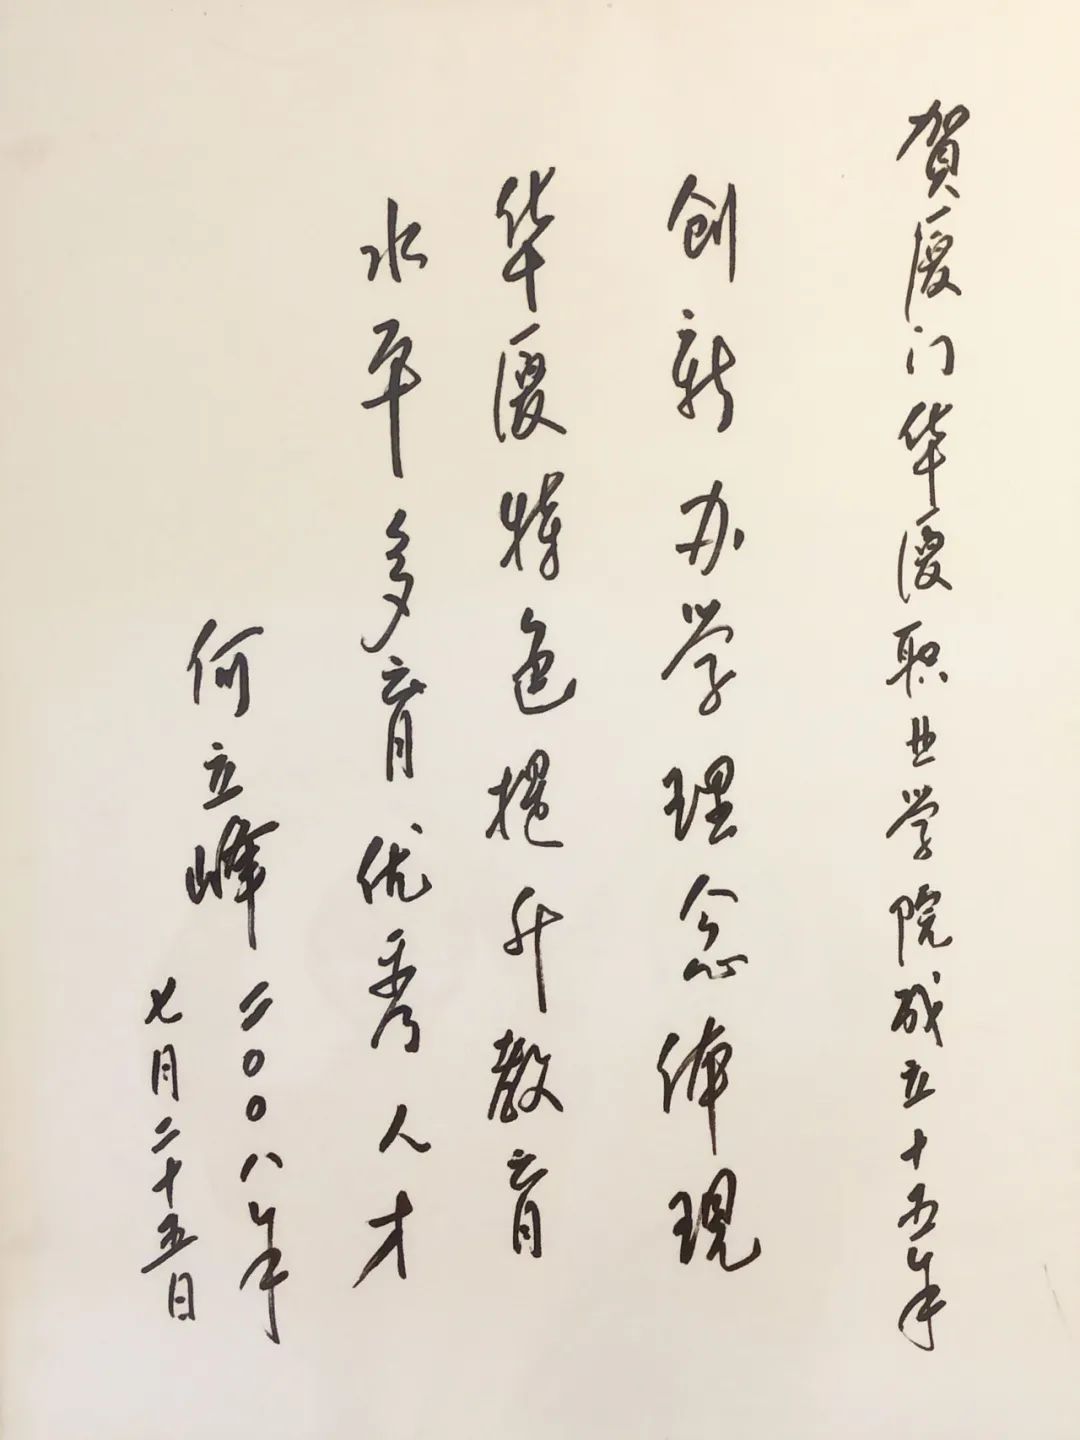 賀厦门华厦职业学院成立十五年
创新办学理念体现
华厦特色提升教育
水平多育优秀人才
何立峰二〇〇八年
七月二十五日